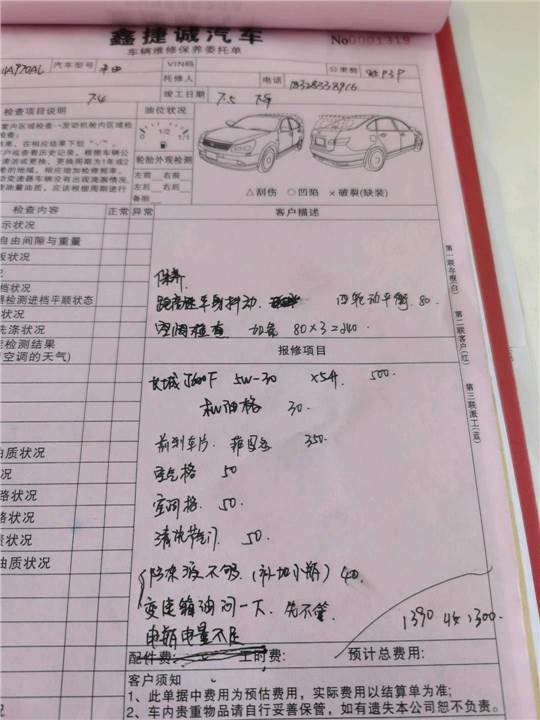 鑫捷诚汽车
车辆维修保养委托单 No0001319
A970AL 汽车型号 丰田 VIN码 公里数
托修人 电话
7.4 竣工日期 7.5 下午
检查项目说明 油位状况
室内区域检查→发动机舱内区域检
0 1/2 1/1
轮胎外观检测
左前 右前
左后 右后
备胎
△刮伤 ○凹陷 ×破裂(缺装)
检查内容 正常 异常 客户描述
示状况
自由间隙与重量
板状况
况
档状况
器检测进档平顺状态
状况
洗涤状况
能检测结果
(空调的天气)
油质状况
况
路状况
络状况
质状况
油质状况
保养
跑高速车身抖动 四轮动平衡 80
空调检查 加氟 80×3=240
报修项目
长城J600F 5W-30 ×5升 500
机油格 30
前刹车片 菲罗多 350
空气格 50
空调格 50
清洗节气门 50
防冻液不够(补加小瓶) 40
变速箱油问一下 先不管
电瓶电量不足
1390 收1300
配件费: 工时费: 预计总费用:
客户须知
1、此单据中费用为预估费用，实际费用以结算单为准;
2、车内贵重物品请自行妥善保管，如有遗失本公司恕不负责。
第一联存根(白)
第二联客户(红)
第三联派工(蓝)